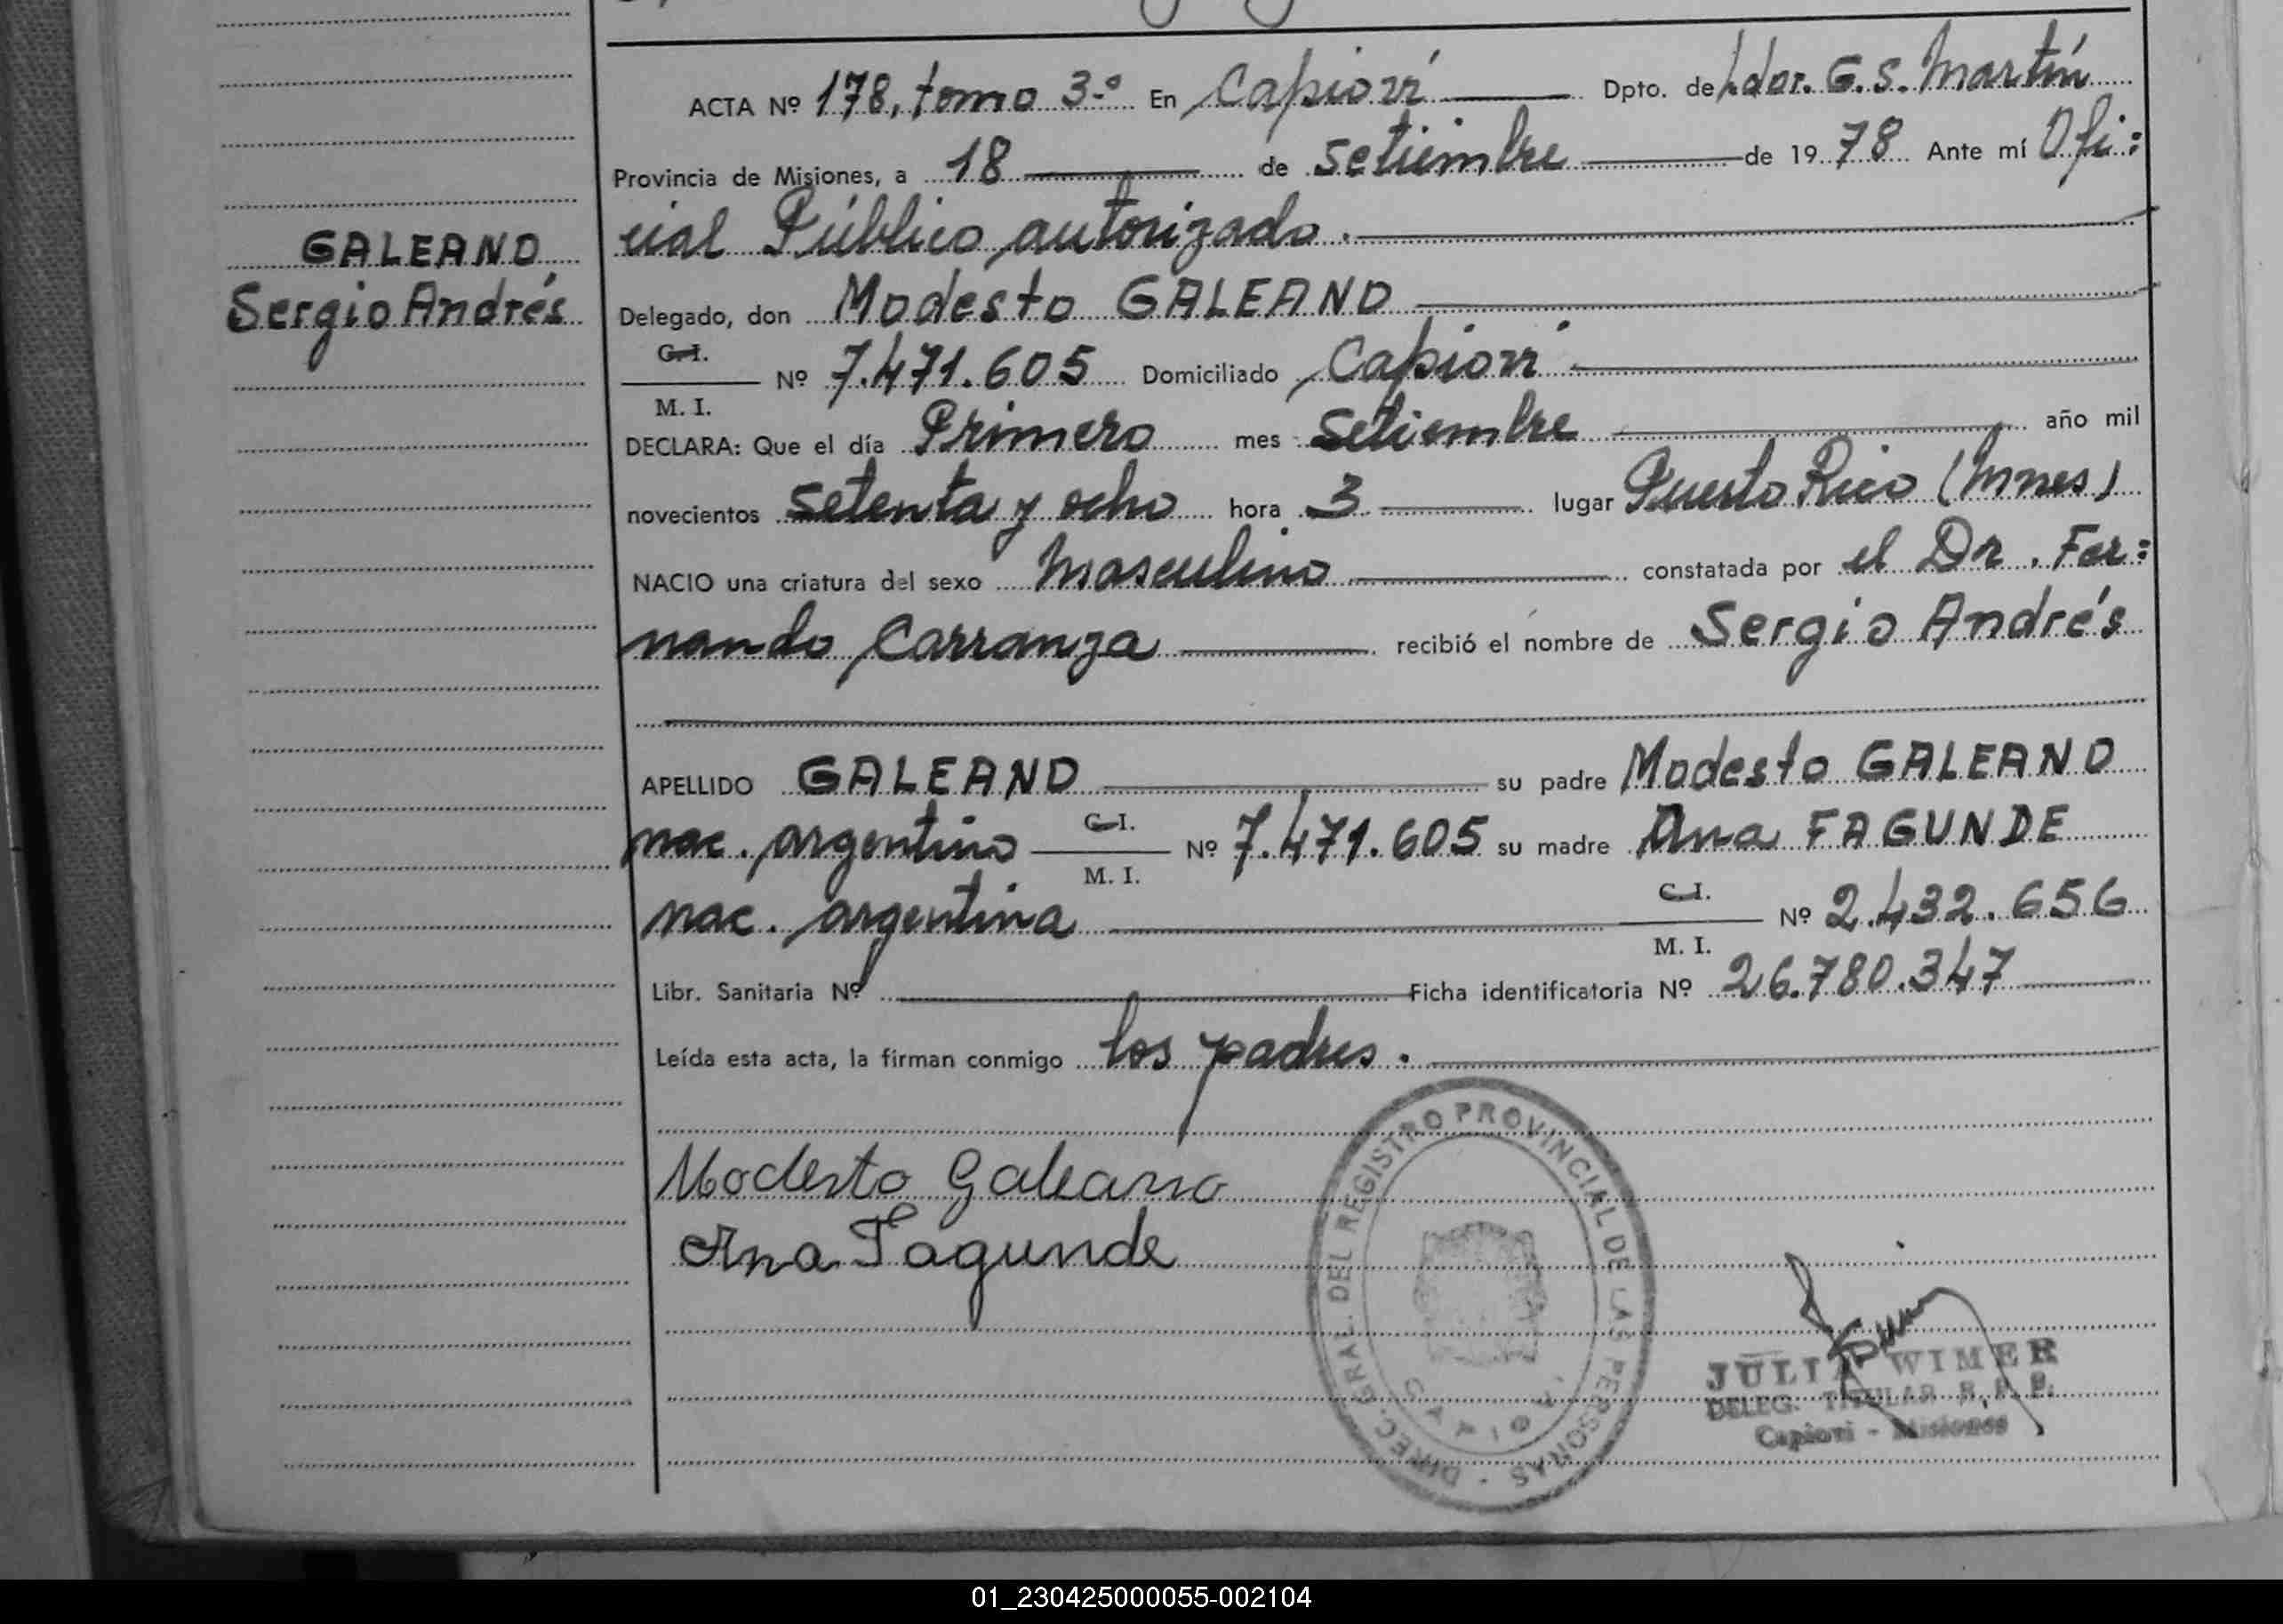 ACTA Nº 178, tomo 3º En Capioví Dpto. de Ldor. G. S. Martín
Provincia de Misiones, a 18 de setiembre de 1978 Ante mí Ofi=
cial Público autorizado.
GALEANO
Sergio Andrés
Delegado, don Modesto GALEANO
C. I.
M. I.
Nº 7.471.605 Domiciliado Capioví
DECLARA: Que el día Primero mes setiembre año mil
novecientos setenta y ocho hora 3 lugar Puerto Rico (Mnes)
NACIO una criatura del sexo masculino constatada por el Dr. Fer=
nando Carranza recibió el nombre de Sergio Andrés
APELLIDO GALEANO su padre Modesto GALEANO
nac. argentino C. I. M. I. Nº 7.471.605 su madre Ana FAGUNDE
nac. argentina C. I. M. I. Nº 2.432.656
Libr. Sanitaria Nº Ficha identificatoria Nº 26.780.347
Leída esta acta, la firman conmigo los padres.
Modesto Galeano
Ana Fagunde
DIREC. GRAL. DEL REGISTRO PROVINCIAL DE LAS PERSONAS
JULIA WIMER
DELEG. TITULAR R. P. P.
Capioví - Misiones
01_230425000055-002104